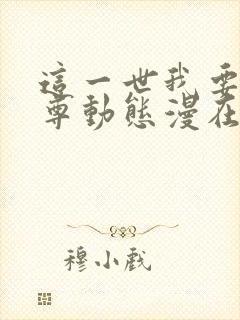 這一世我要
尊動態漫在
穆小戲